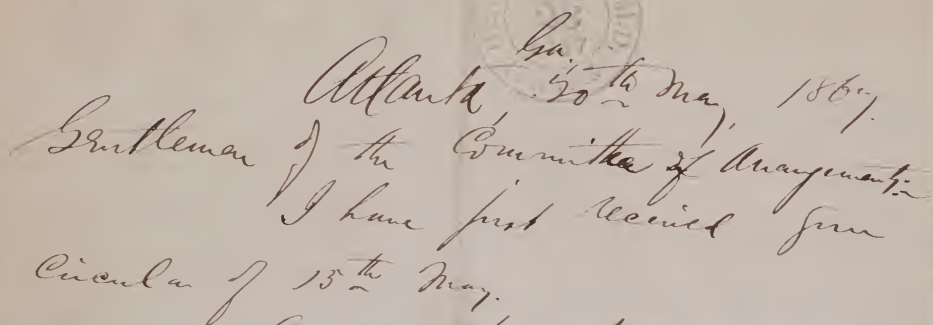 Atlanta, Ga., 20th May, 1867.
Gentlemen of the Committee of Arrangements:
I have just received your
Circular of 15th May.